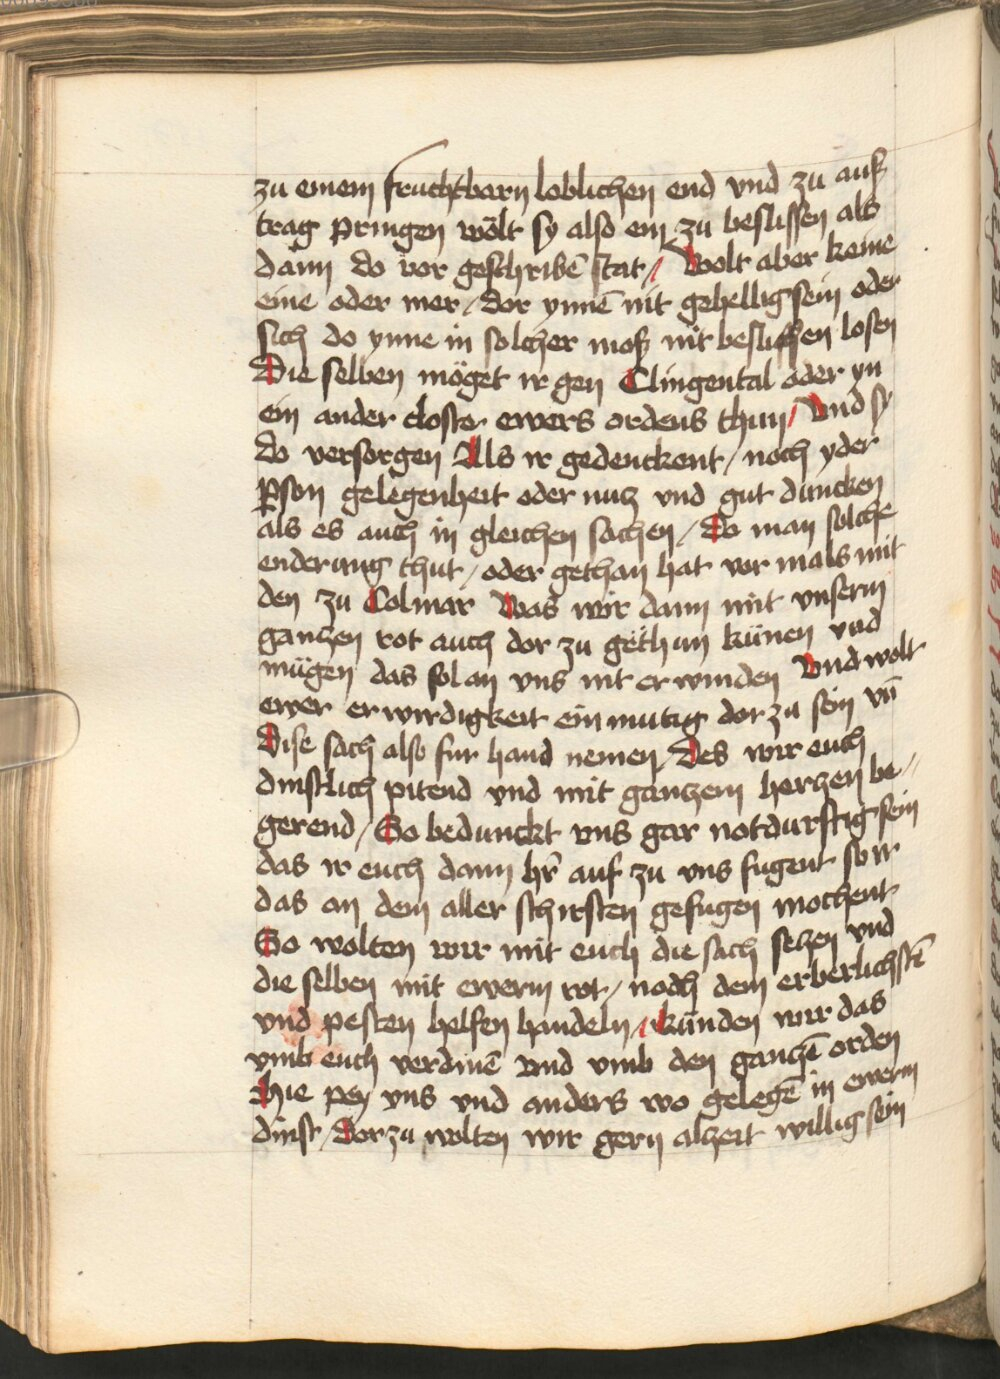 zu einem fruchtbarn loblichen end vnd zu auß
trag pringen wölt sy also ein zu beslissen als
dann do vor geschribē stat / Wolt aber keine
eine oder mer / dor ynnē nit gehellig sein oder
sich do ynne in solcher moß nit beslissen losen
Die selben möget ir gen Clingental oder yn
ein ander closter ewers ordens thun / Vnd sy
do versorgen Als ir gedenckent / noch yder
ꝑson gelegenheit oder nucz vnd gut duncken
als es auch in gleichen sachen / Do man solche
enderung thut / oder gethan hat vor mals mit
den zu Colmar Was wir dann mit vnserm
ganczen rot auch dor zu gethun künen vnd
mügen das sol an vns nit erwinden Vnd wolt
ewer erwirdigkeit einmutig dor zu sein vn̄
Dise sach also fur hand nemen / Des wir euch
dinstlich pitend vnd mit ganczem herczen be-
gerend / So bedunckt vns gar notdurftig sein
das ir euch dann hr̄ auf zu vns fugent so ir
das an dem aller schirsten gefugen mochent
So wolten wir mit euch die sach seczen vnd
die selben mit ewerm rot / noch dem erberlichstē
vnd pesten helfen handeln / Künden wir das
vmb euch verdinē vnd vmb den ganczē orden
Hie pey vns vnd anders wo gelegē in ewerm
dinst / Dor zu wolten wir gern alczeit willig sein